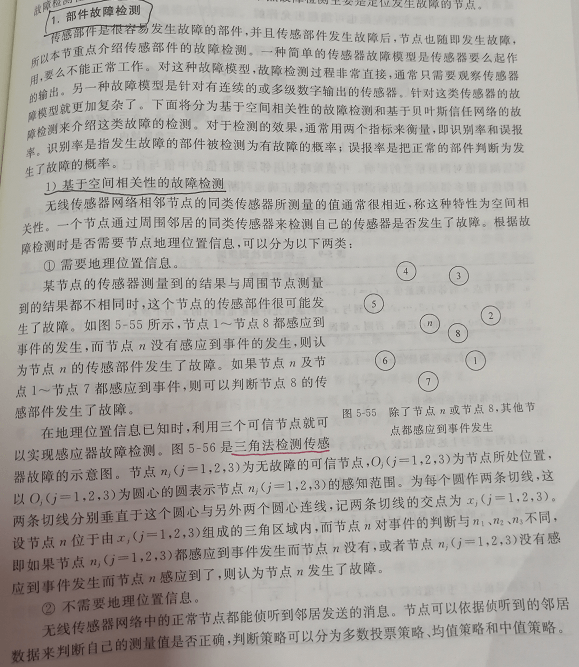 故障检测
障检测主要是定位发生故障的节点。
1. 部件故障检测
传感部件是很容易发生故障的部件,并且传感部件发生故障后,节点也随即发生故障,
所以本节重点介绍传感部件的故障检测。一种简单的传感器故障模型是传感器要么起作
用,要么不能正常工作。对这种故障模型,故障检测过程非常直接,通常只需要观察传感器
的输出。另一种故障模型是针对有连续的或多级数字输出的传感器。针对这类传感器的故
障模型就更加复杂了。下面将分为基于空间相关性的故障检测和基于贝叶斯信任网络的故
障检测来介绍这类故障的检测。对于检测的效果,通常用两个指标来衡量,即识别率和误报
率。识别率是指发生故障的部件被检测为有故障的概率;误报率是把正常的部件判断为发
生了故障的概率。
1) 基于空间相关性的故障检测
无线传感器网络相邻节点的同类传感器所测量的值通常很相近,称这种特性为空间相
关性。一个节点通过周围邻居的同类传感器来检测自己的传感器是否发生了故障。根据故
障检测时是否需要节点地理位置信息,可以分为以下两类:
① 需要地理位置信息。
某节点的传感器测量到的结果与周围节点测量
到的结果都不相同时,这个节点的传感部件很可能发
生了故障。如图 5-55 所示,节点 1~节点 8 都感应到
事件的发生,而节点 n 没有感应到事件的发生,则认
为节点 n 的传感部件发生了故障。如果节点 n 及节
点 1~节点 7 都感应到事件,则可以判断节点 8 的传
感部件发生了故障。
4
3
5
2
n
8
6
1
7
图 5-55 除了节点 n 或节点 8,其他节
点都感应到事件发生
在地理位置信息已知时,利用三个可信节点就可
以实现感应器故障检测。图 5-56 是三角法检测传感
器故障的示意图。节点 nⱼ(j=1,2,3)为无故障的可信节点,Oⱼ(j=1,2,3)为节点所处位置,
以 Oⱼ(j=1,2,3)为圆心的圆表示节点 nⱼ(j=1,2,3)的感知范围。为每个圆作两条切线,这
两条切线分别垂直于这个圆心与另外两个圆心连线,记两条切线的交点为 xⱼ(j=1,2,3)。
设节点 n 位于由 xⱼ(j=1,2,3)组成的三角区域内,而节点 n 对事件的判断与 n₁、n₂、n₃不同,
即如果节点 nⱼ(j=1,2,3)都感应到事件发生而节点 n 没有,或者节点 nⱼ(j=1,2,3)没有感
应到事件发生而节点 n 感应到了,则认为节点 n 发生了故障。
② 不需要地理位置信息。
无线传感器网络中的正常节点都能侦听到邻居发送的消息。节点可以依据侦听到的邻居
数据来判断自己的测量值是否正确,判断策略可以分为多数投票策略、均值策略和中值策略。